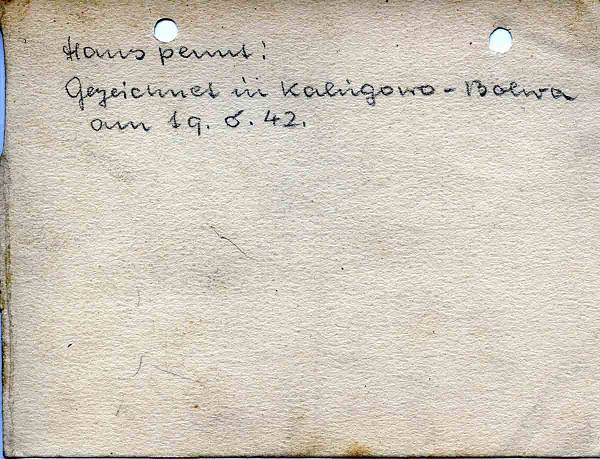 Hans pennt!
Gezeichnet in Kalugowo - Bolwa
am 19. 6. 42.